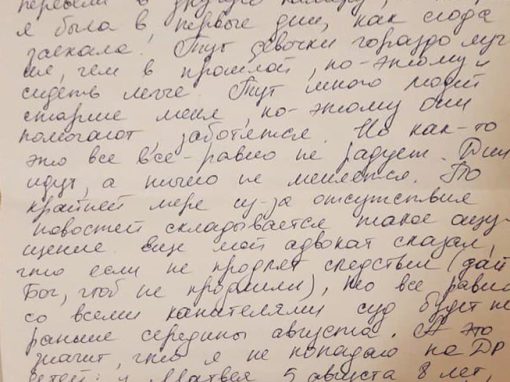 перевели в другую камеру,
я была в первые дни, как сюда
заехала. Тут девочки гораздо луч
ше, чем в прошлой, по-этому и
сидеть легче. Тут много людей
старше меня, по-этому они
помогают, заботятся. Но как-то
это все всё-равно не радует. Дни
идут, а ничего не меняется. По
крайней мере из-за отсутствия
новостей складывается такое ощу
щение. Еще мой адвокат сказал,
что если не продлят следствие (дай
Бог, чтоб не продлили), то все равно
со всеми канителями суд будет не
раньше середины августа. А это
значит, что я не попадаю на ДР
детей: у Матвея 5 августа 8 лет,